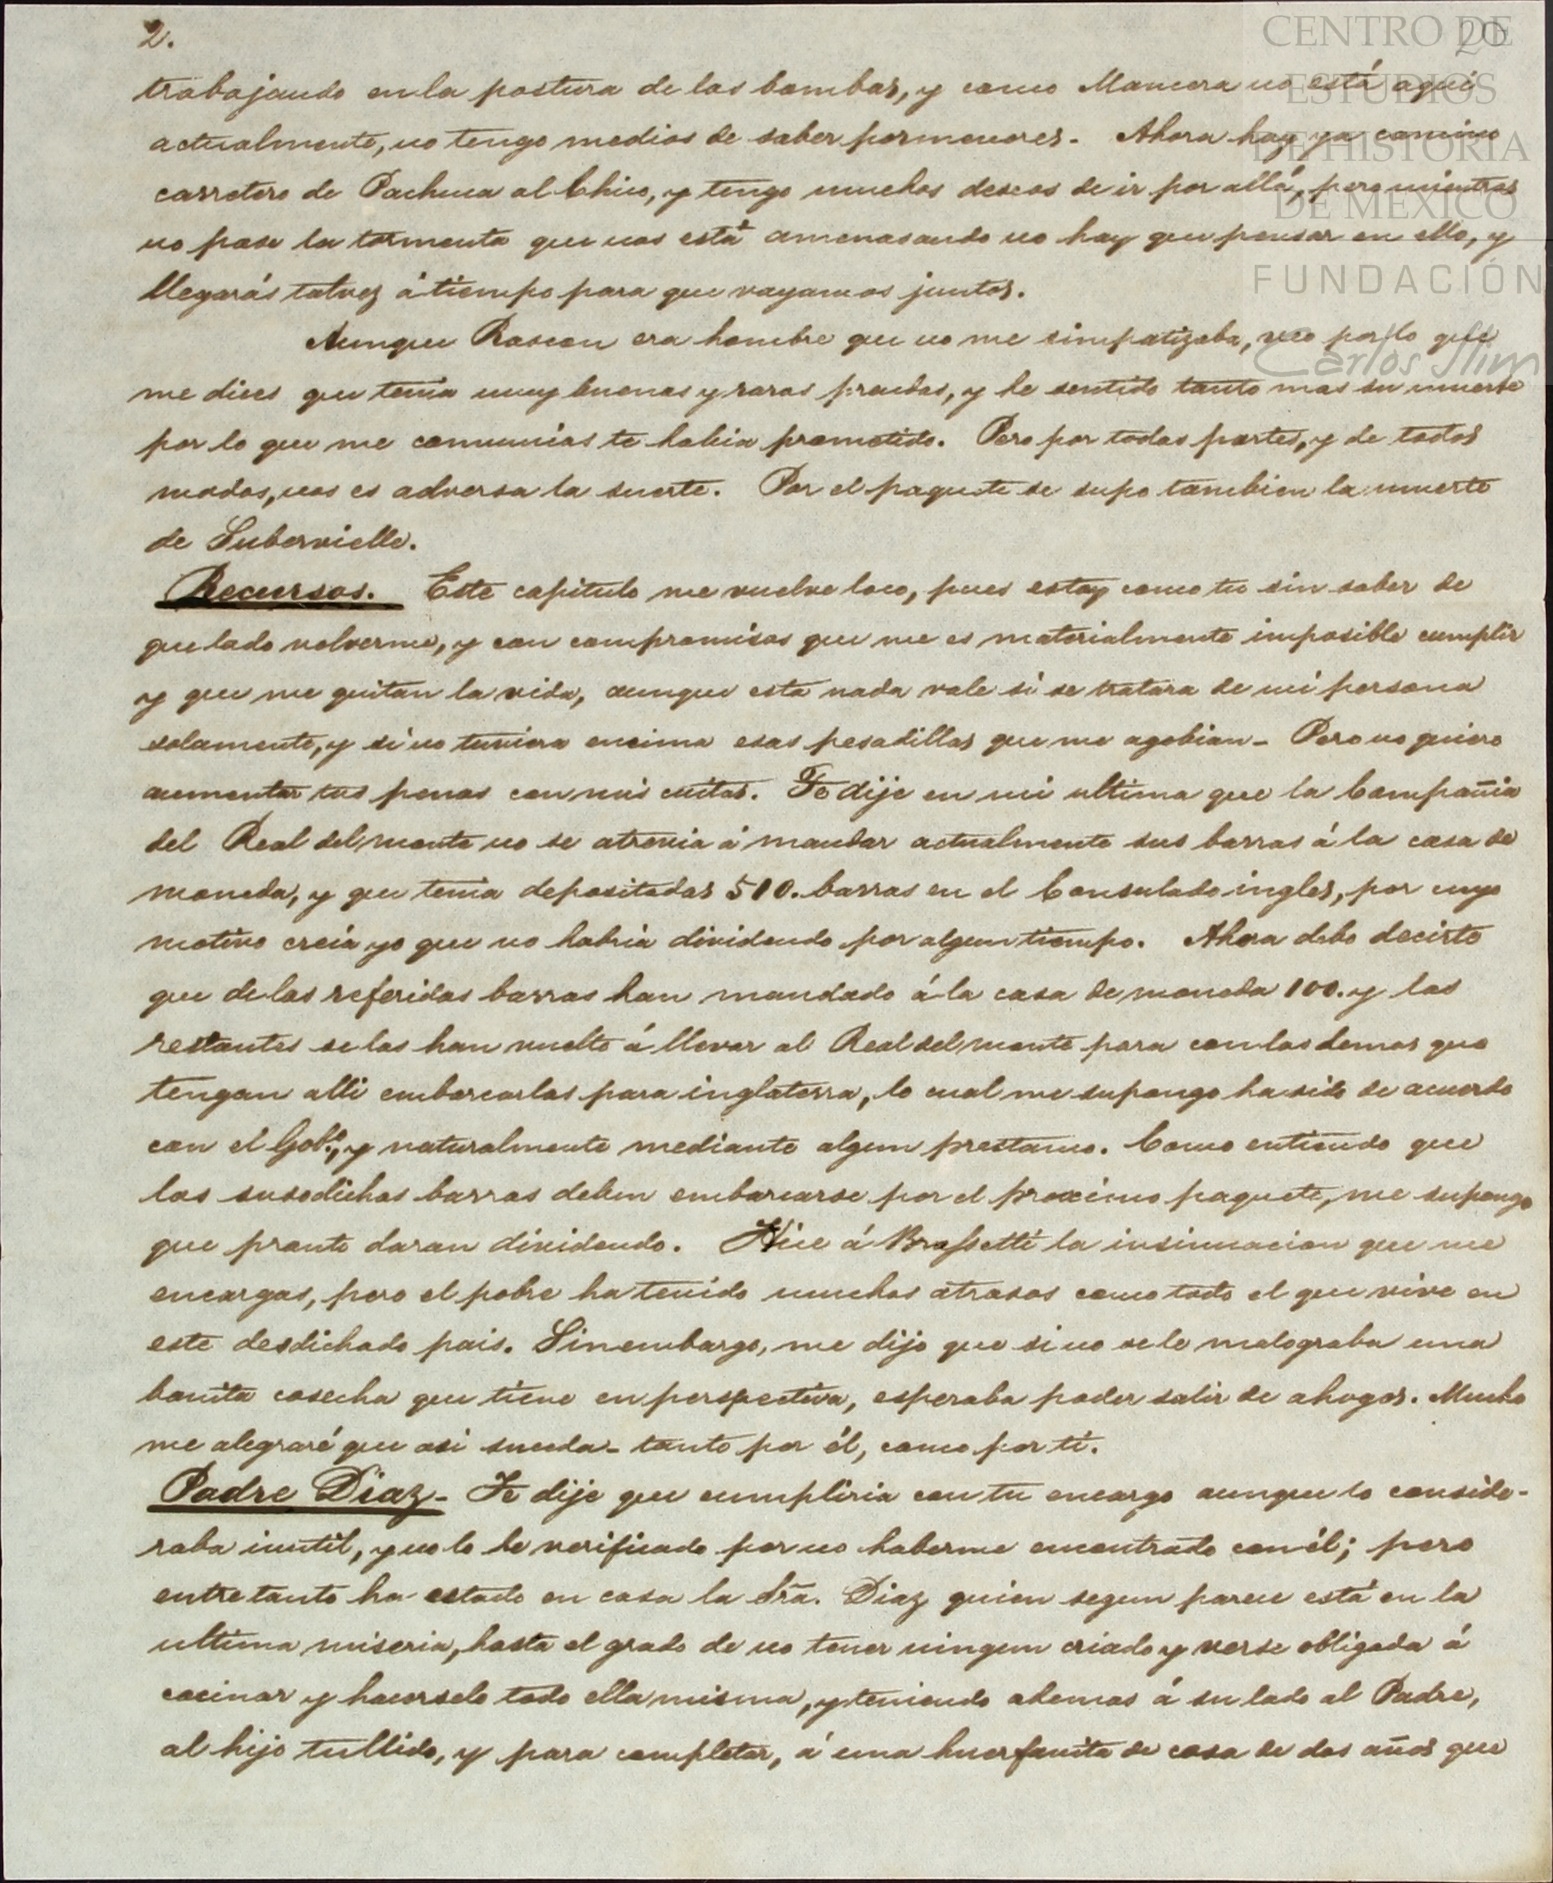 2.
20
CENTRO DE
ESTUDIOS
DE HISTORIA
DE MEXICO
FUNDACIÓN
Carlos Slim
trabajando en la postura de las bombas, y como Mancera no está aqui
actualmente, no tengo medios de saber pormenores. Ahora hay ya camino
carretero de Pachuca al Chico, y tengo muchos deseos de ir por allá, pero mientras
no pase la tormenta que nos está amenasando no hay que pensar en ello, y
llegarás talvez á tiempo para que vayamos juntos.
Aunque Rascon era hombre que no me simpatizaba, veo por lo que
me dices que tenia muy buenas y raras prendas, y he sentido tanto mas su muerte
por lo que me comunicas te habia prometido. Pero por todas partes, y de todos
modos, nos es adversa la suerte. Por el paquete se supo tambien la muerte
de Subervielle.
Recursos. Este capitulo me vuelve loco, pues estoy como tu sin saber de
que lado volverme, y con compromisos que me es materialmente imposible cumplir
y que me quitan la vida, aunque esta nada vale si se tratara de mi persona
solamente, y si no tuviera encima esas pesadillas que me agobian_ Pero no quiero
aumentar tus penas con mis cuitas. Te dije en mi ultima que la Compañia
del Real del monte no se atrevia á mandar actualmente sus barras á la casa de
moneda, y que tenia depositadas 510. barras en el Consulado ingles, por cuyo
motivo creia yo que no habria dividendo por algun tiempo. Ahora debo decirte
que de las referidas barras han mandado á la casa de moneda 100. y las
restantes se las han vuelto á llevar al Real del monte para con las demas que
tengan alli embarcarlas para inglaterra, lo cual me supongo ha sido de acuerdo
con el Gob.º, y naturalmente mediante algun prestamo. Como entiendo que
las susodichas barras deben embarcarse por el proximo paquete, me supongo
que pronto daran dividendo. Hice á Brassetti la insinuacion que me
encargas, pero el pobre ha tenido muchos atrasos como todo el que vive en
este desdichado pais. Sinembargo, me dijo que si no se le malograba una
bonita cosecha que tiene en perspectiva, esperaba poder salir de ahogos. Mucho
me alegraré que asi suceda_ tanto por él, como por ti.
Padre Diaz_ Te dije que cumpliria con tu encargo aunque lo conside-
raba inutil, y no lo he verificado por no haberme encontrado con él; pero
entretanto ha estado en casa la Sra. Diaz quien segun parece está en la
ultima miseria, hasta el grado de no tener ningun criado y verse obligada á
cocinar y hacerselo todo ella misma, y teniendo ademas á su lado al Padre,
al hijo tullido, y para completar, á una huerfanita de casa de dos años que